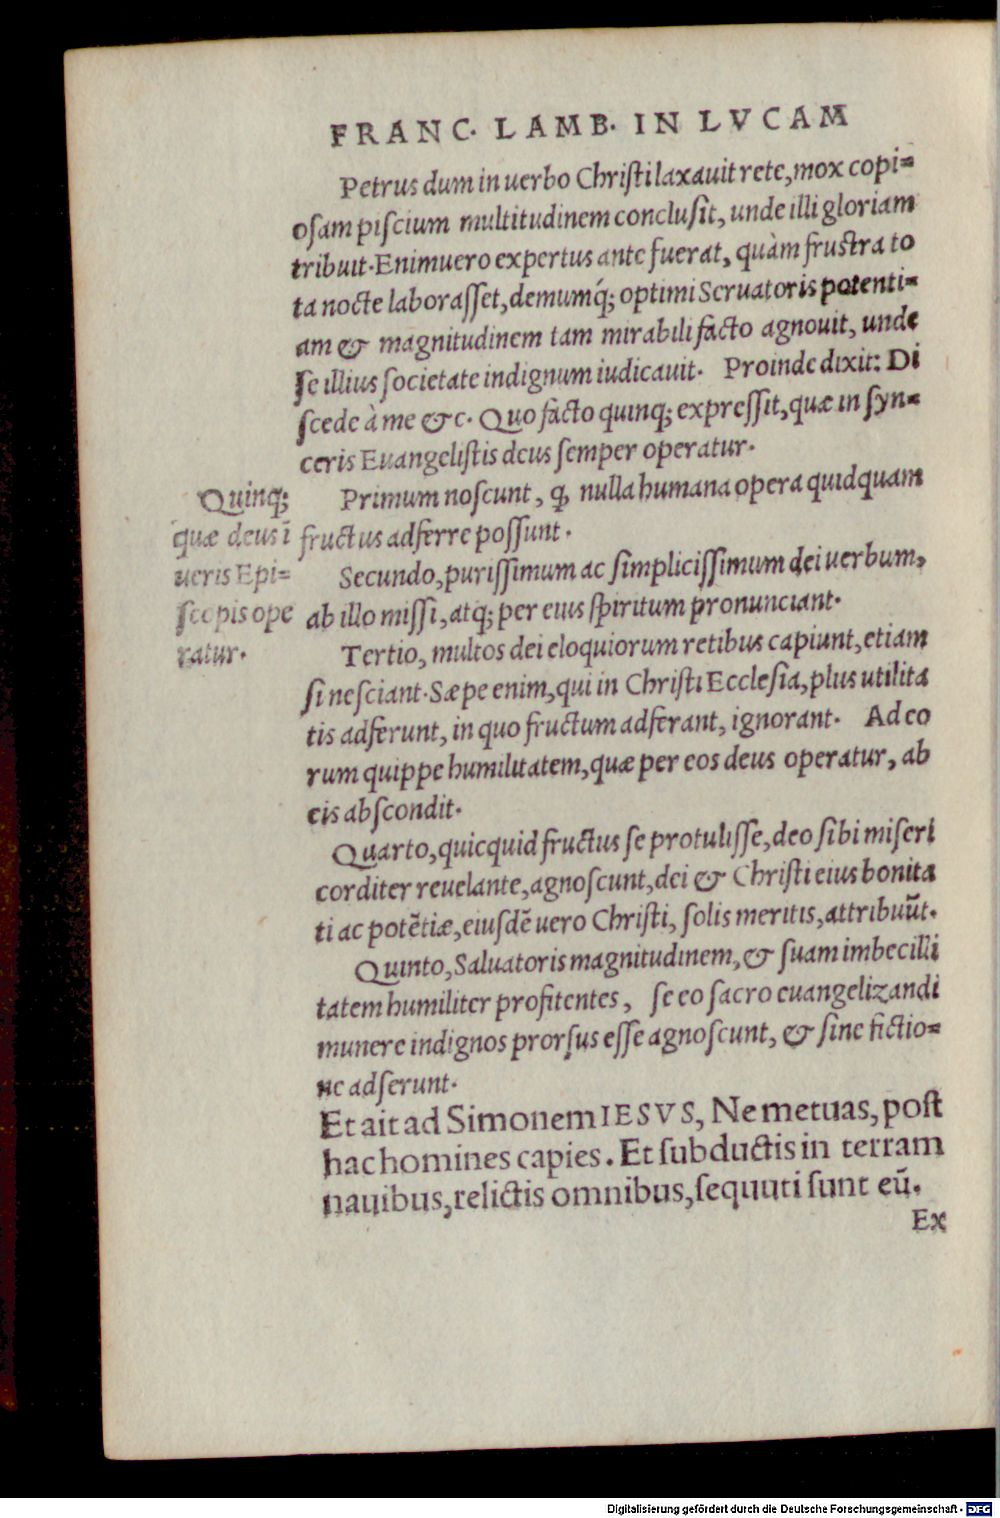 FRANC. LAMB. IN LVCAM
Petrus dum in uerbo Christi laxauit rete, mox copi=
osam piscium multitudinem conclusit, unde illi gloriam
tribuit. Enimuero expertus ante fuerat, quàm frustra to
ta nocte laborasset, demumq́; optimi Seruatoris potenti=
am & magnitudinem tam mirabili facto agnouit, unde
se illius societate indignum iudicauit. Proinde dixit: Di
scede à me &c. Quo facto quinq; expressit, quæ in syn=
ceris Euangelistis deus semper operatur.
Quinq;
quæ deus ī
ueris Epi=
scopis ope
ratur.
Primum noscunt, ꝙ nulla humana opera quidquam
fructus adferre possunt.
Secundo, purissimum ac simplicissimum dei uerbum,
ab illo missi, atq; per eius spiritum pronunciant.
Tertio, multos dei eloquiorum retibus capiunt, etiam
si nesciant. Sæpe enim, qui in Christi Ecclesia, plus utilita
tis adferunt, in quo fructum adferant, ignorant. Ad eo
rum quippe humilitatem, quæ per eos deus operatur, ab
eis abscondit.
Quarto, quicquid fructus se protulisse, deo sibi miseri
corditer reuelante, agnoscunt, dei & Christi eius bonita
ti ac potētiæ, eiusdē uero Christi, solis meritis, attribuūt.
Quinto, Saluatoris magnitudinem, & suam imbecilli
tatem humiliter profitentes, se eo sacro euangelizandi
munere indignos prorsus esse agnoscunt, & sine fictio=
ne adserunt.
Et ait ad Simonem IESVS, Ne metuas, post
hac homines capies. Et subductis in terram
nauibus, relictis omnibus, sequuti sunt eū.
Ex
Digitalisierung gefördert durch die Deutsche Forschungsgemeinschaft - DFG